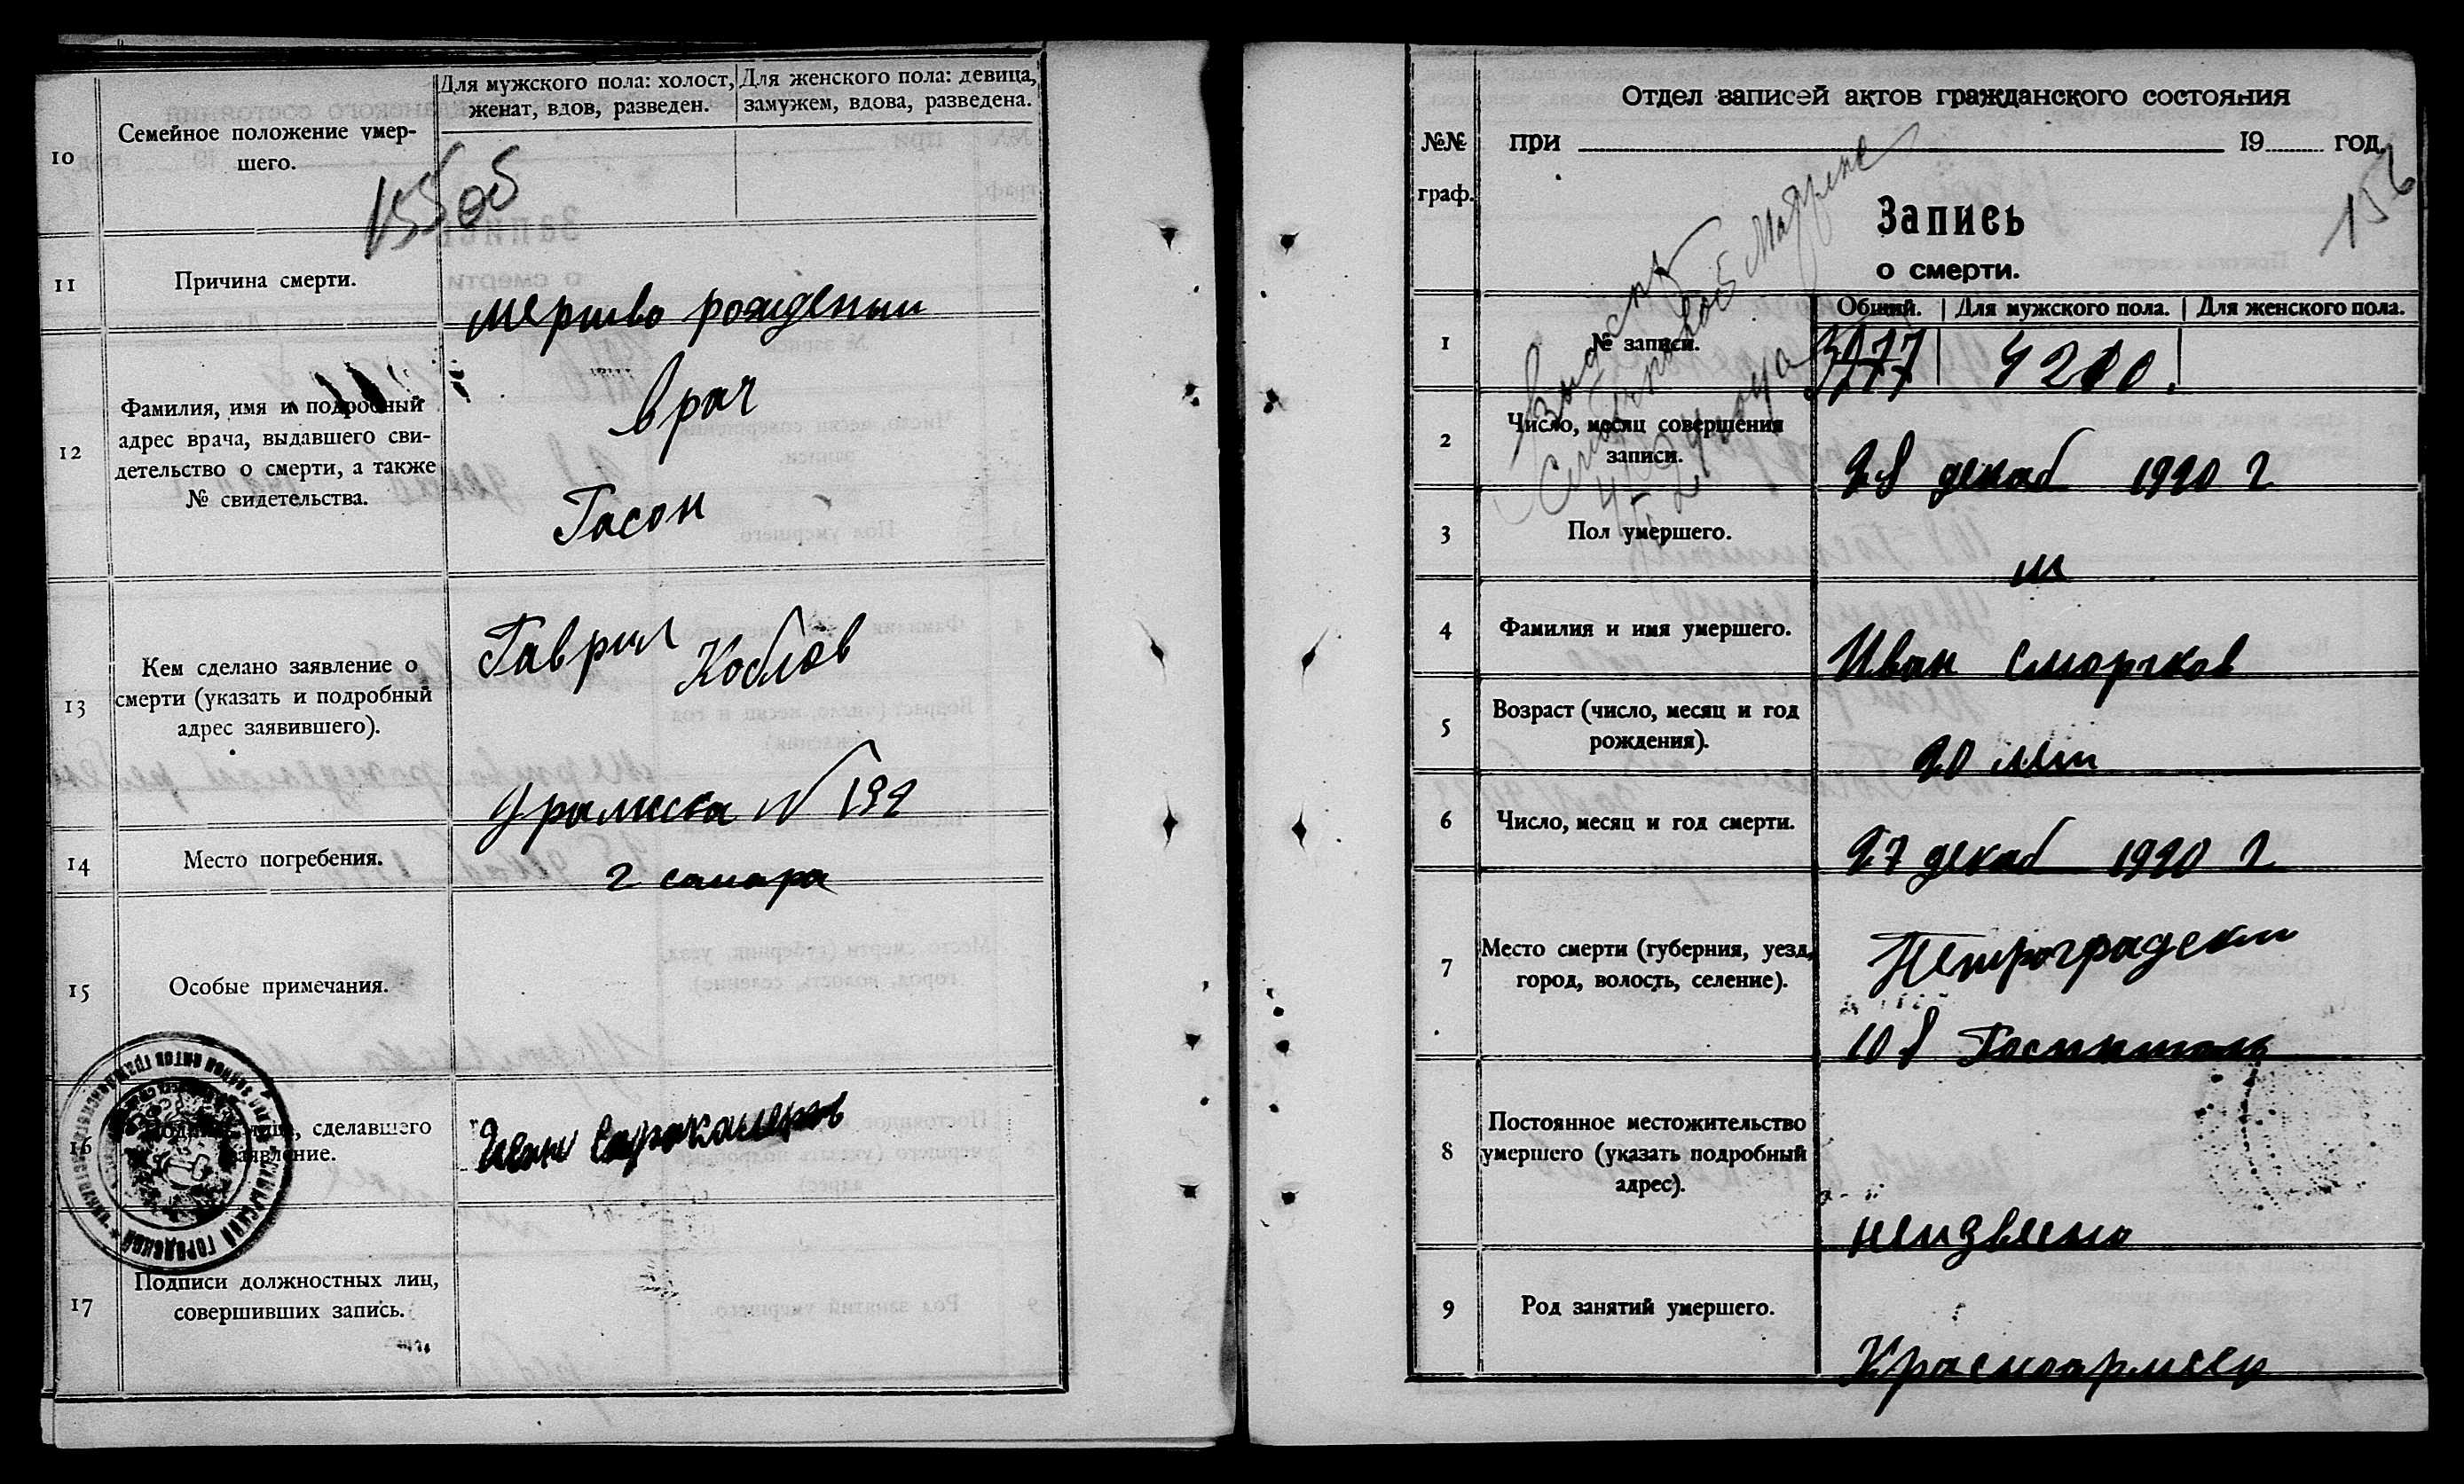 10
Семейное положение умер-
шего.
Для мужского пола: холост,
женат, вдов, разведен.
Для женского пола: девица,
замужем, вдова, разведена.
155об
11
Причина смерти.
мертво рождении
12
Фамилия, имя и подробный
адрес врача, выдавшего сви-
детельство о смерти, а также
№ свидетельства.
врач
Гасон
13
Кем сделано заявление о
смерти (указать и подробный
адрес заявившего).
Гаврил Коблов
Уральска № 192
14
Место погребения.
г самара
15
Особые примечания.
16
сделавшего
заявление.
Иван
17
Подписи должностных лиц,
совершивших запись.
№№
граф.
Отдел записей актов гражданского состояния
при 19 год.
156
Запись
о смерти.
Общий. Для мужского пола. Для женского пола.
1
№ записи.
4210.
2
Число, месяц совершения
записи.
28 декаб 1920 г
3
Пол умершего.
м
4
Фамилия и имя умершего.
Иван Сморчков
5
Возраст (число, месяц и год
рождения).
20 лет
6
Число, месяц и год смерти.
27 декаб 1920 г
7
Место смерти (губерния, уезд,
город, волость, селение).
Петроградски
108 Госпиталь
8
Постоянное местожительство
умершего (указать подробный
адрес).
неизвесно
9
Род занятий умершего.
Красноармеец